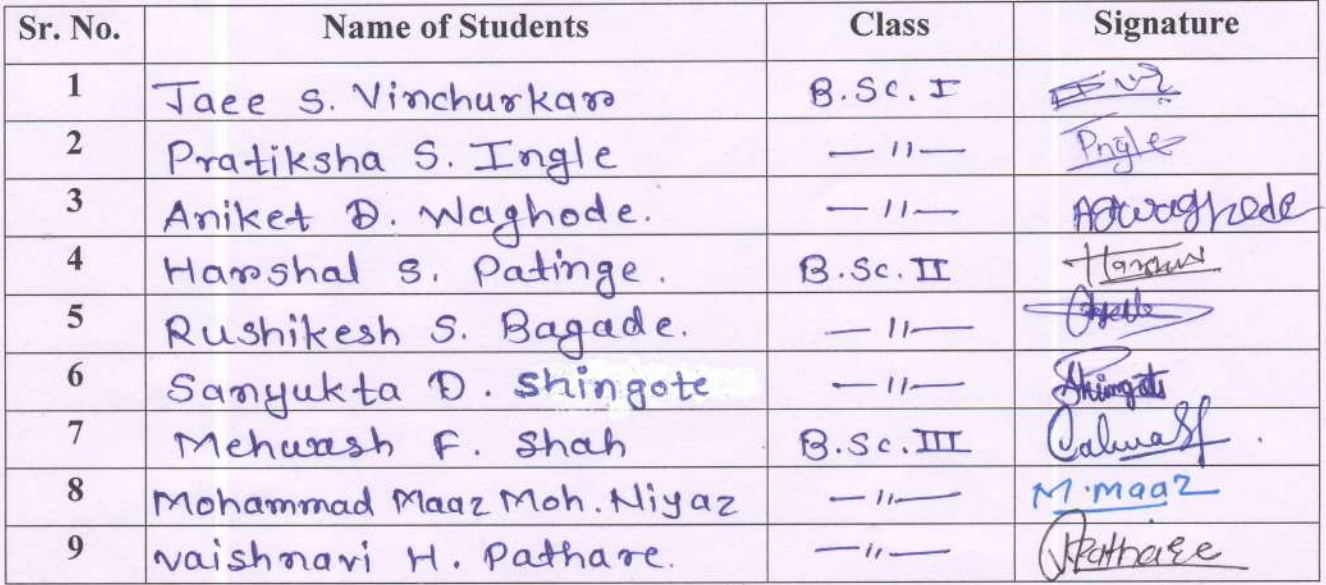 Sr. No. Name of Students Class Signature
1 Jaee S. Vinchurkar B.Sc. I
2 Pratiksha S. Ingle —11— Pngle
3 Aniket D. Waghode. —11— ADWaghode
4 Harshal S. Patinge. B.Sc. II
5 Rushikesh S. Bagade. —11—
6 Sanyukta D. Shingote —11— Shingote
7 Mehwash F. Shah B.Sc. III
8 Mohammad Maaz Moh. Niyaz —11— M.maaz
9 Vaishnavi H. Pathare. —11— VPathare